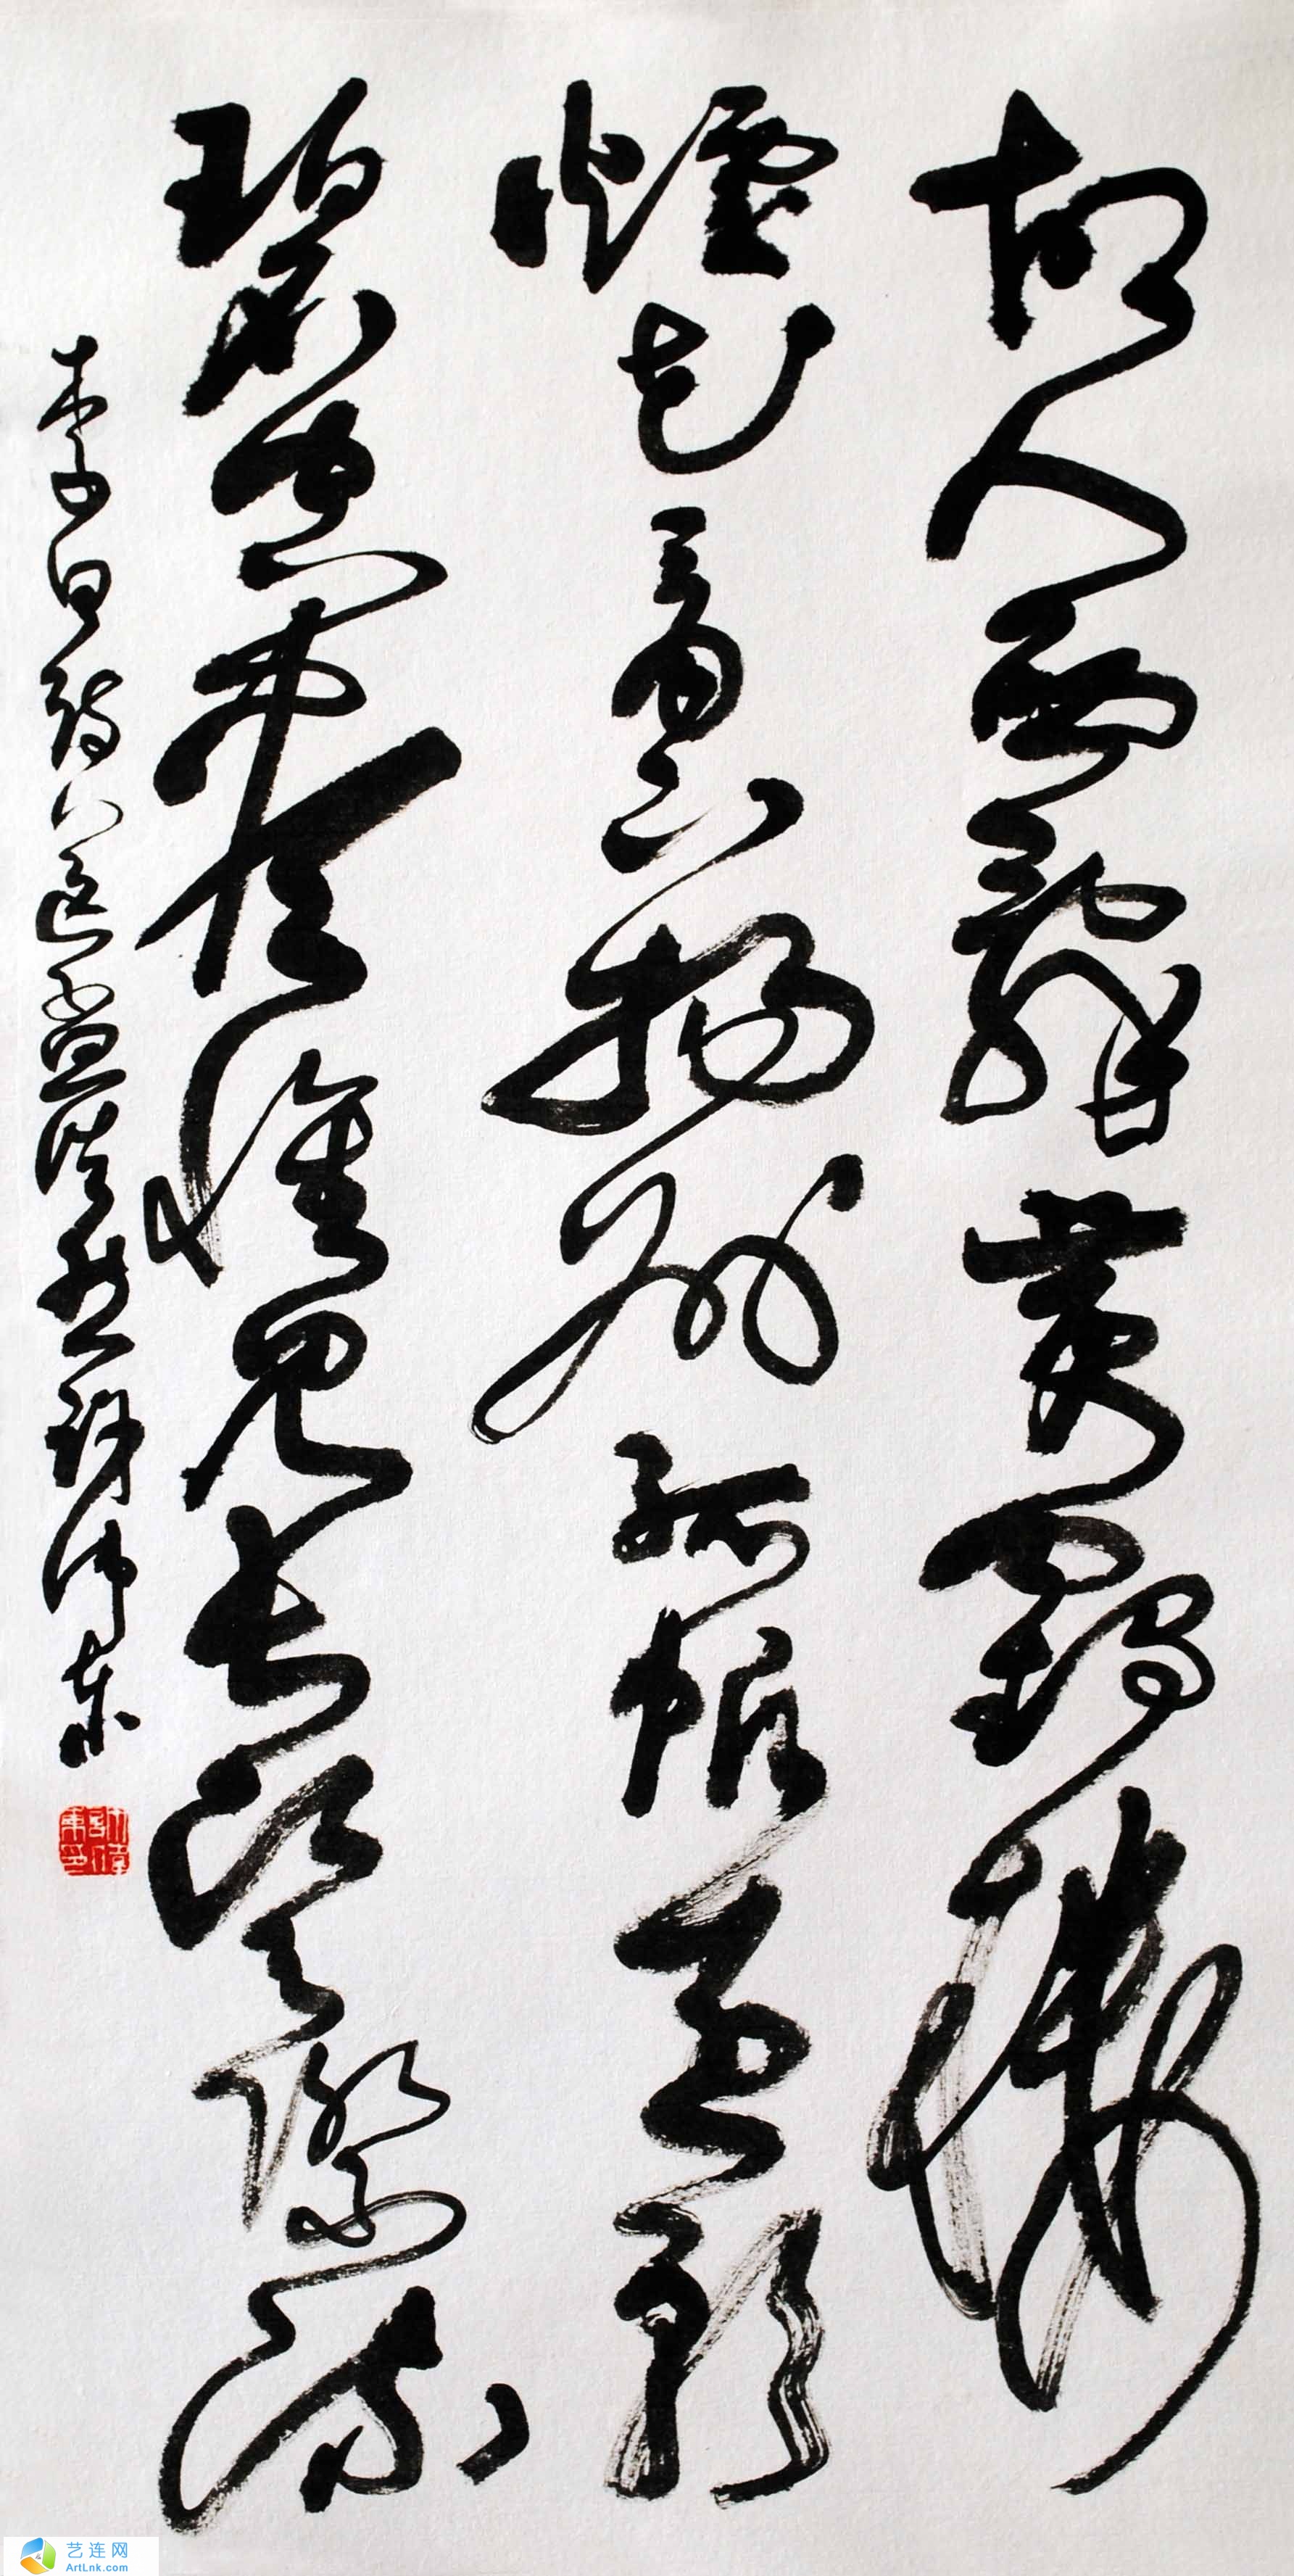 故人西辞黄鹤楼
烟花三月下扬州孤帆远影
碧空尽惟见长江天际流
李白诗 送孟浩然 伟东
艺连网
ArtLnk.com